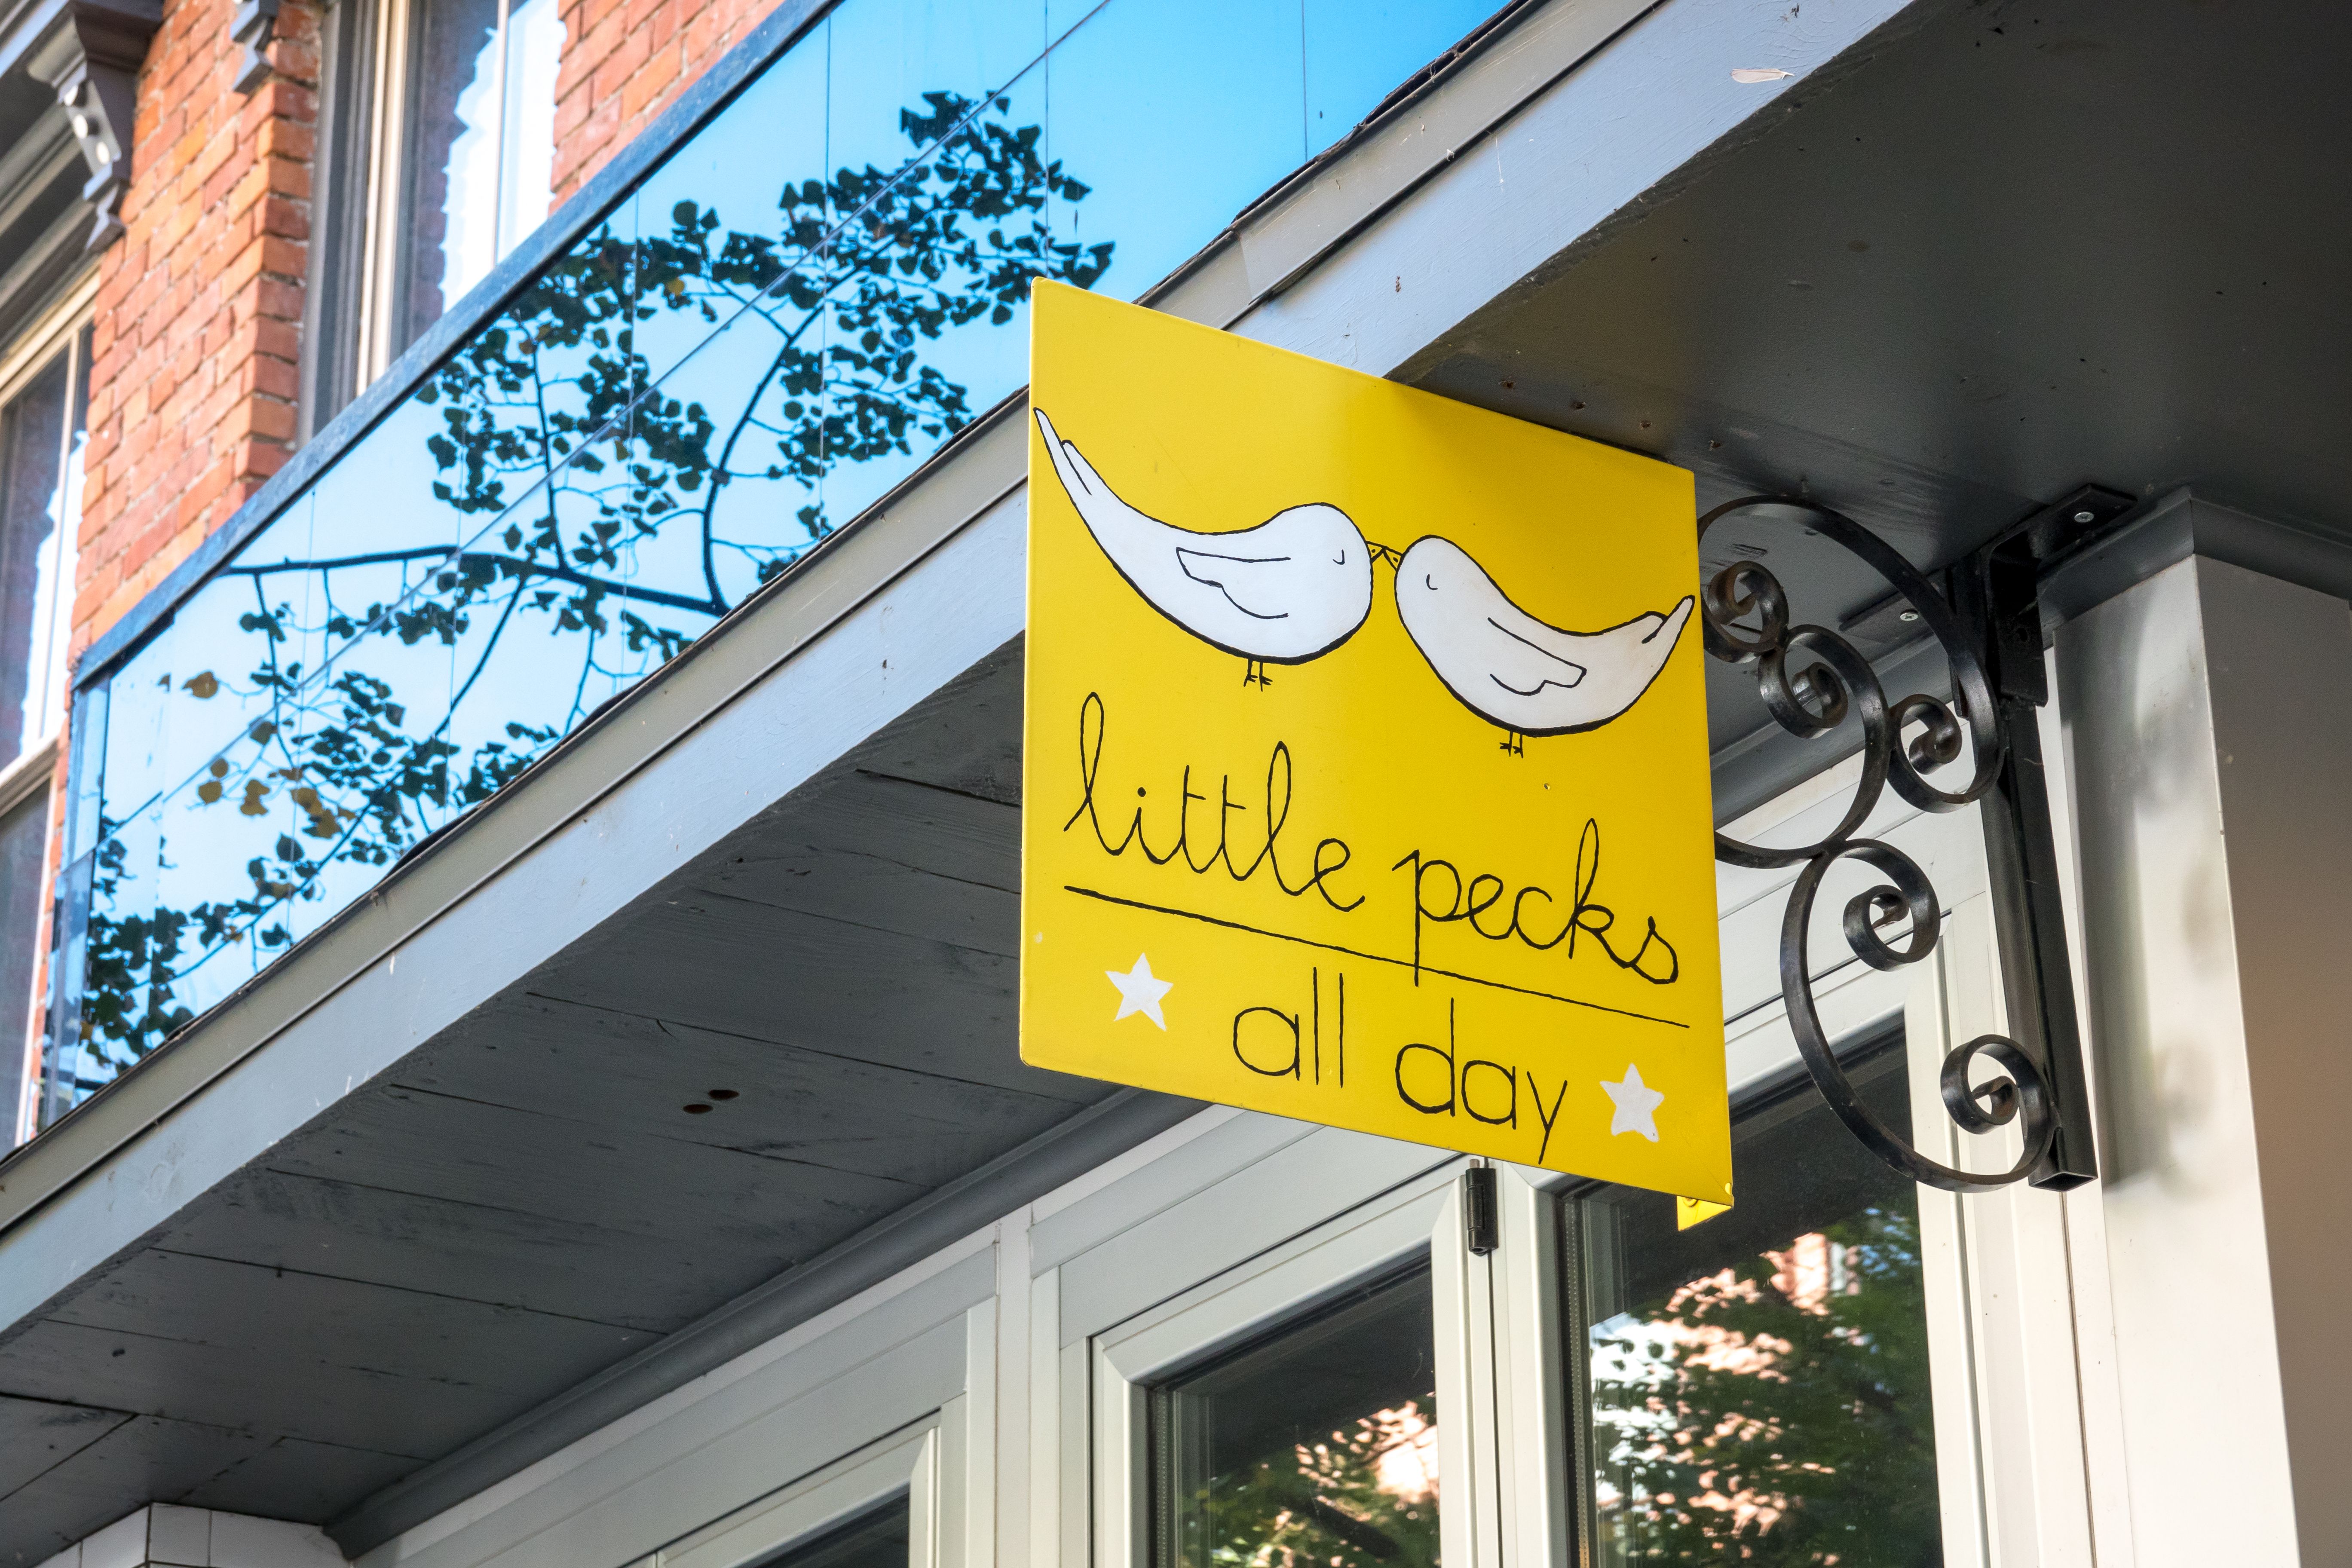 little pecks
all day